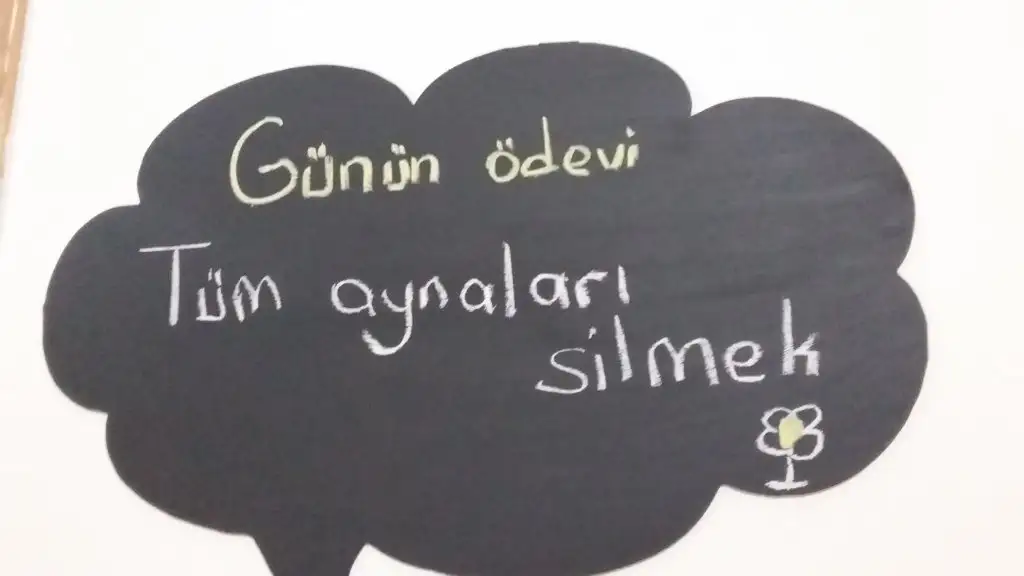 Günün ödevi
Tüm aynaları
silmek